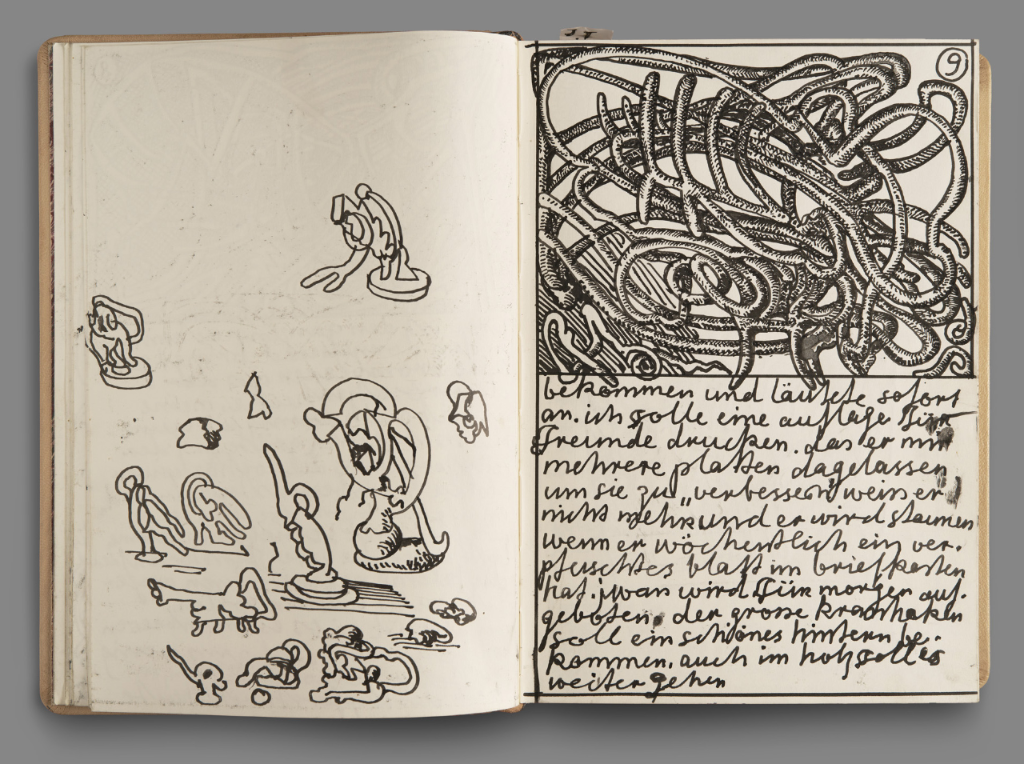 9
bekommen und läutete sofort
an. ich solle eine auflage für
freunde drucken. das er mir
mehrere platten dagelassen
um sie zu „verbessern" weiss er
nicht mehr und er wird staunen
wenn er wöchentlich ein ver-
pfuschtes blatt im briefkasten
hat. jwan wird für morgen auf-
geboten. der grosse kranhaken
soll ein schönes hintern be-
kommen. auch im holz soll es
weiter gehen